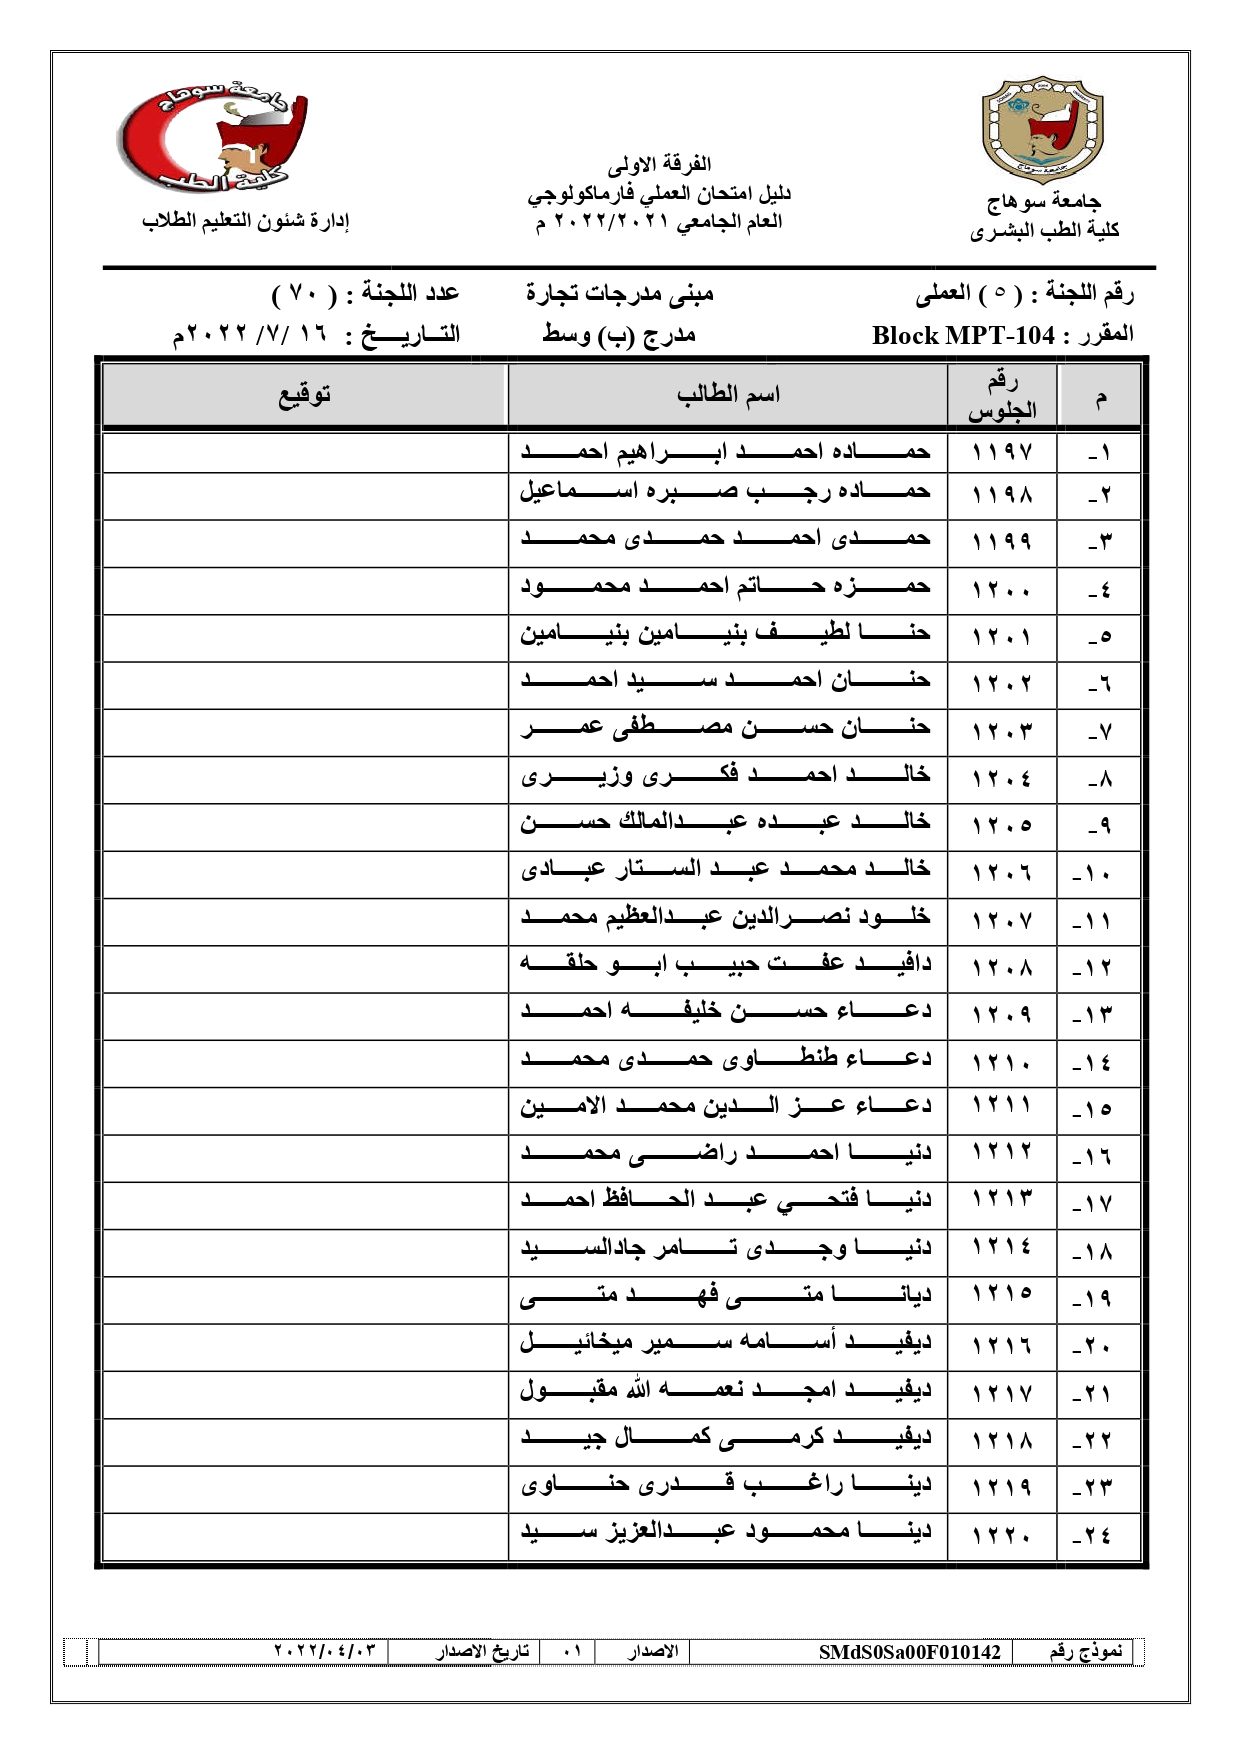 جامعة سوهاج
كلية الطب
جامعة سوهاج
الفرقة الاولى
دليل امتحان العملي فارماكولوجي
العام الجامعي ٢٠٢٢/٢٠٢١ م
جامعة سوهاج
كلية الطب البشرى
إدارة شئون التعليم الطلاب
رقم اللجنة : ( ٥ ) العملى مبنى مدرجات تجارة عدد اللجنة : ( ٧٠ )
المقرر : Block MPT-104 مدرج (ب) وسط التاريخ : ١٦ /٧/ ٢٠٢٢م
م رقم الجلوس اسم الطالب توقيع
١- ١١٩٧ حماده احمد ابراهيم احمد
٢- ١١٩٨ حماده رجب صبره اسماعيل
٣- ١١٩٩ حمدى احمد حمدى محمد
٤- ١٢٠٠ حمزه حاتم احمد محمود
٥- ١٢٠١ حنا لطيف بنيامين بنيامين
٦- ١٢٠٢ حنان احمد سيد احمد
٧- ١٢٠٣ حنان حسن مصطفى عمر
٨- ١٢٠٤ خالد احمد فكرى وزيرى
٩- ١٢٠٥ خالد عبده عبدالمالك حسن
١٠- ١٢٠٦ خالد محمد عبد الستار عبادى
١١- ١٢٠٧ خلود نصرالدين عبدالعظيم محمد
١٢- ١٢٠٨ دافيد عفت حبيب ابو حلقه
١٣- ١٢٠٩ دعاء حسن خليفه احمد
١٤- ١٢١٠ دعاء طنطاوى حمدى محمد
١٥- ١٢١١ دعاء عز الدين محمد الامين
١٦- ١٢١٢ دنيا احمد راضى محمد
١٧- ١٢١٣ دنيا فتحي عبد الحافظ احمد
١٨- ١٢١٤ دنيا وجدى تامر جادالسيد
١٩- ١٢١٥ ديانا متى فهد متى
٢٠- ١٢١٦ ديفيد أسامه سمير ميخائيل
٢١- ١٢١٧ ديفيد امجد نعمه الله مقبول
٢٢- ١٢١٨ ديفيد كرمى كمال جيد
٢٣- ١٢١٩ دينا راغب قدرى حناوى
٢٤- ١٢٢٠ دينا محمود عبدالعزيز سيد
نموذج رقم SMdS0Sa00F010142 الاصدار ٠١ تاريخ الاصدار ٢٠٢٢/٠٤/٠٣